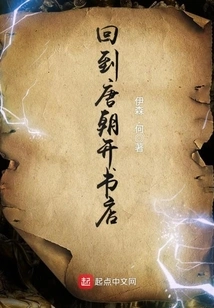 回到唐朝开书店
伊森·何 著
起点中文网